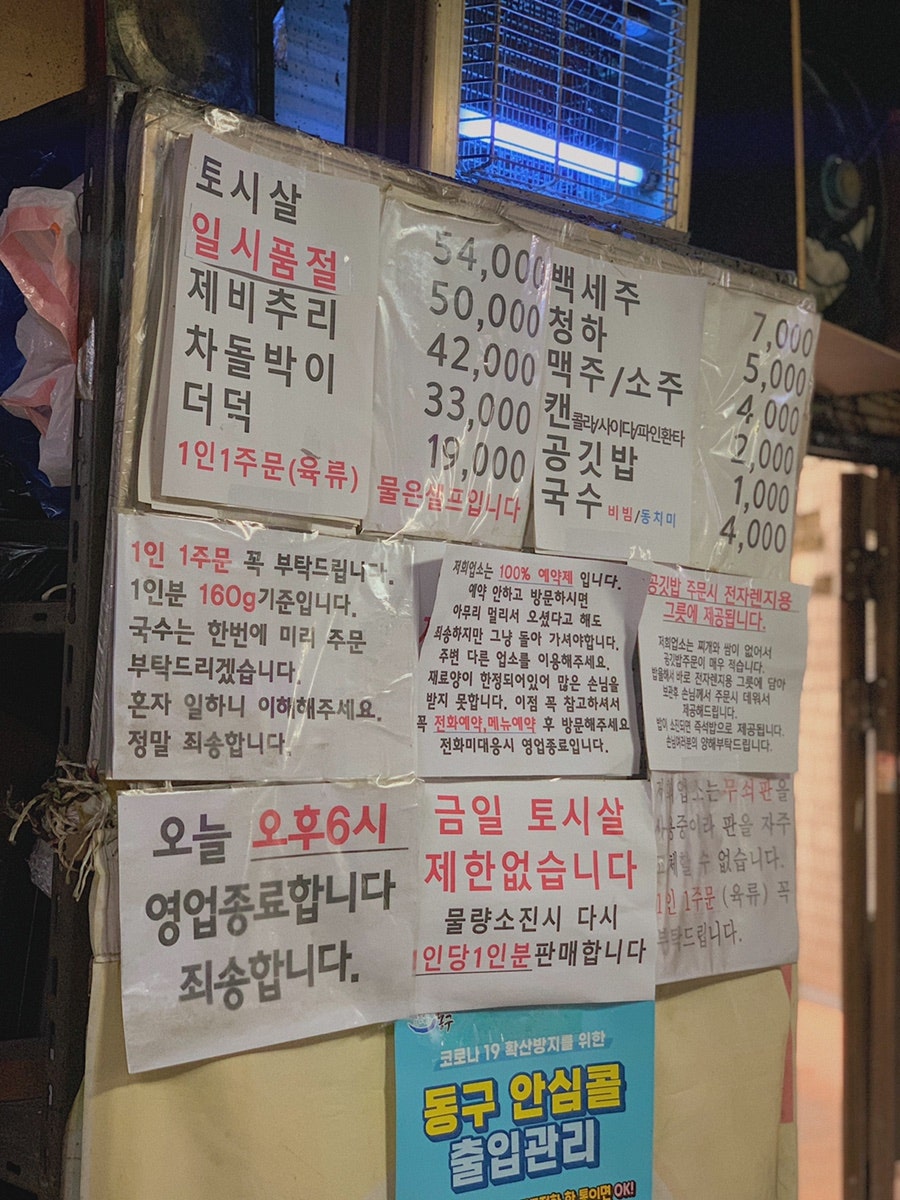 토시살
일시품절
제비추리
차돌박이
더덕
1인1주문(육류)
54,000
50,000
42,000
33,000
19,000
물은셀프입니다
백세주
청하
맥주/소주
캔콜라/사이다/파인환타
공깃밥
국수 비빔/동치미
7,000
5,000
4,000
2,000
1,000
4,000
1인 1주문 꼭 부탁드립니다.
1인분 160g기준입니다.
국수는 한번에 미리 주문
부탁드리겠습니다.
혼자 일하니 이해해주세요.
정말 죄송합니다.
저희업소는 100% 예약제 입니다.
예약 안하고 방문하시면
아무리 멀리서 오셨다고 해도
죄송하지만 그냥 돌아 가셔야합니다.
주변 다른 업소를 이용해주세요.
재료양이 한정되어있어 많은 손님을
받지 못합니다. 이점 꼭 참고하셔서
꼭 전화예약,메뉴예약 후 방문해주세요
전화미대응시 영업종료입니다.
공깃밥 주문시 전자렌지용
그릇에 제공됩니다.
저희업소는 찌개와 쌈이 없어서
공깃밥주문이 매우 적습니다.
밥을해서 바로 전자렌지용 그릇에 담아
보관후 손님께서 주문시 데워서
제공해드립니다.
밥이 소진되면 즉석밥으로 제공됩니다.
손님여러분의 양해부탁드립니다.
오늘 오후6시
영업종료합니다
죄송합니다.
금일 토시살
제한없습니다
물량소진시 다시
1인당1인분판매합니다
저희업소는 무쇠판을
사용중이라 판을 자주
교체할 수 없습니다.
1인 1주문 (육류) 꼭
부탁드립니다.
동구
코로나 19 확산방지를 위한
동구 안심콜
출입관리
전화 한 통이면 OK!